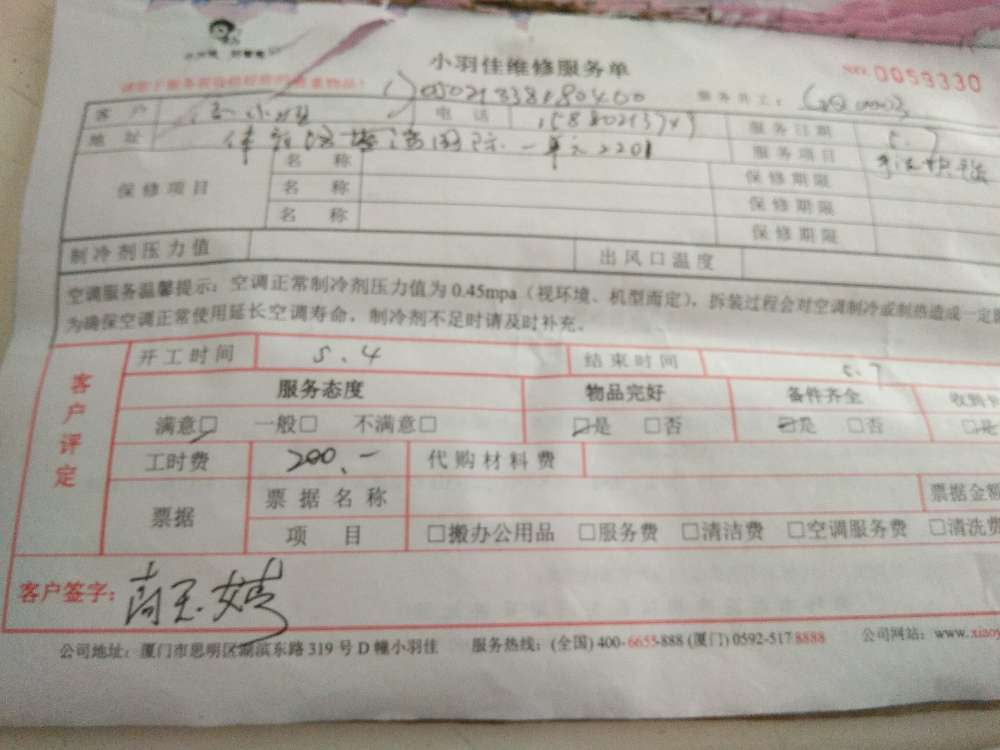 小羽佳维修服务单
NO. 0059330
客 户 电 话 服务日期 5.7
地 址 一单元2201 服务项目
保修项目 名 称 保修期限
名 称 保修期限
名 称 保修期限
制冷剂压力值 出风口温度
空调服务温馨提示：空调正常制冷剂压力值为 0.45mpa（视环境、机型而定），拆装过程会对空调制冷或制热造成一定
为确保空调正常使用延长空调寿命，制冷剂不足时请及时补充。
客户评定
开工时间 5.4 结束时间 5.7
服务态度 物品完好 备件齐全
满意□ 一般□ 不满意□ □是 □否 □是 □否 □是
工时费 200.- 代购材料费
票据 票据名称 票据金额
项 目 □搬办公用品 □服务费 □清洁费 □空调服务费 □清洗费
客户签字：
公司地址：厦门市思明区湖滨东路 319 号 D 幢小羽佳 服务热线：(全国) 400-6655-888 (厦门) 0592-517 8888 公司网站：www.xiaoy